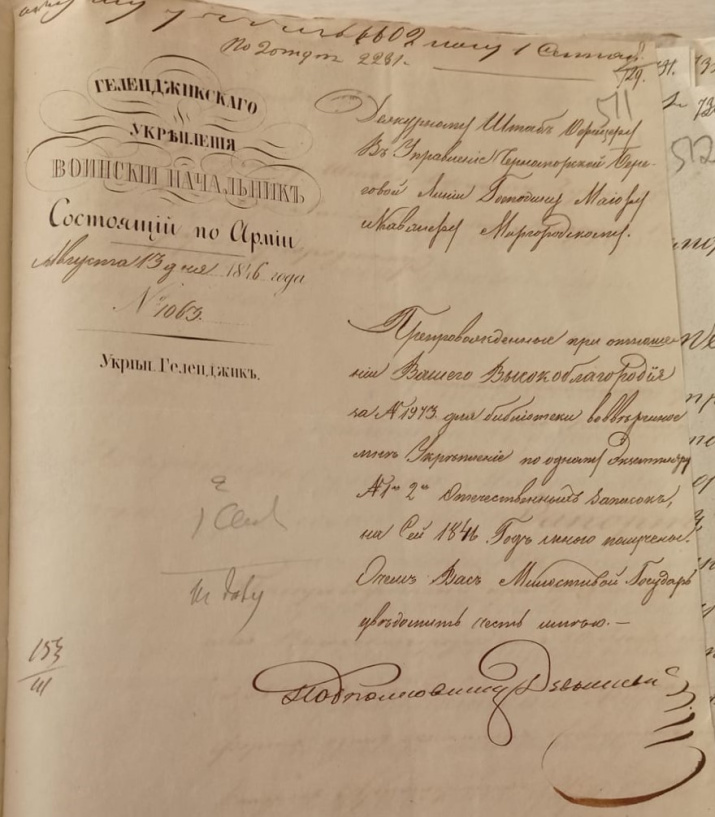 6602 1 Сентяб.
По 2 отд. 2231.
729.
511
ГЕЛЕНДЖИКСКАГО
УКРѢПЛЕНІЯ
ВОИНСКІЙ НАЧАЛЬНИКЪ
Состоящій по Арміи
Августа 13 дня 1846 года
№ 1063.
Укрѣп. Геленджикъ.
Дежурному Штабъ Офицеру
Въ Управленіе Черноморской Бере-
говой Линіи Господину Маіору
и Кавалеру Миргородскому.
Препровожденные при отноше-
ніи Вашего Высокоблагородія
за № 1973 для библіотеки во ввѣренное
мнѣ Укрѣпленіе по одному Экземпляру
№ 1 и 2 Отечественныхъ записокъ,
на Сей 1846 Годъ мною получены.
О чемъ Васъ Милостивой Государь
увѣдомить честь имѣю. —
Подполковникъ
153
III
512